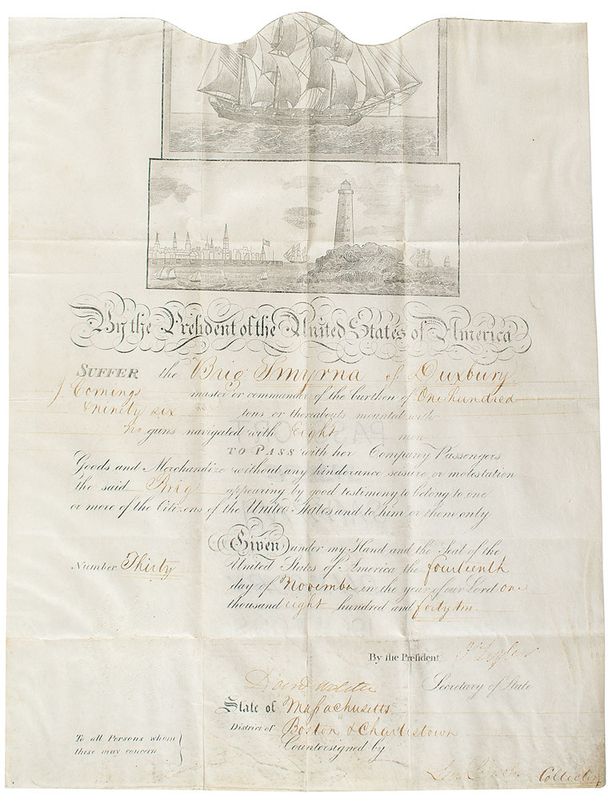 By the President of the United States of America
SUFFER the Brig Smyrna of Duxbury
master or commander of the burthen of One hundred
& ninety six tons or thereabouts mounted with
no guns navigated with eight men
TO PASS with her Company Passengers
Goods and Merchandize without any hinderance seisure or molestation
the said Brig appearing by good testimony to belong to one
or more of the Citizens of the United States and to him or them only
Given under my Hand and the Seal of the
Number Thirty United States of America the fourteenth
day of November in the year of our Lord one
thousand eight hundred and forty
By the President
Secretary of State
State of Massachusetts
District of Boston & Charlestown
Countersigned by
To all Persons whom
these may concern
Collector